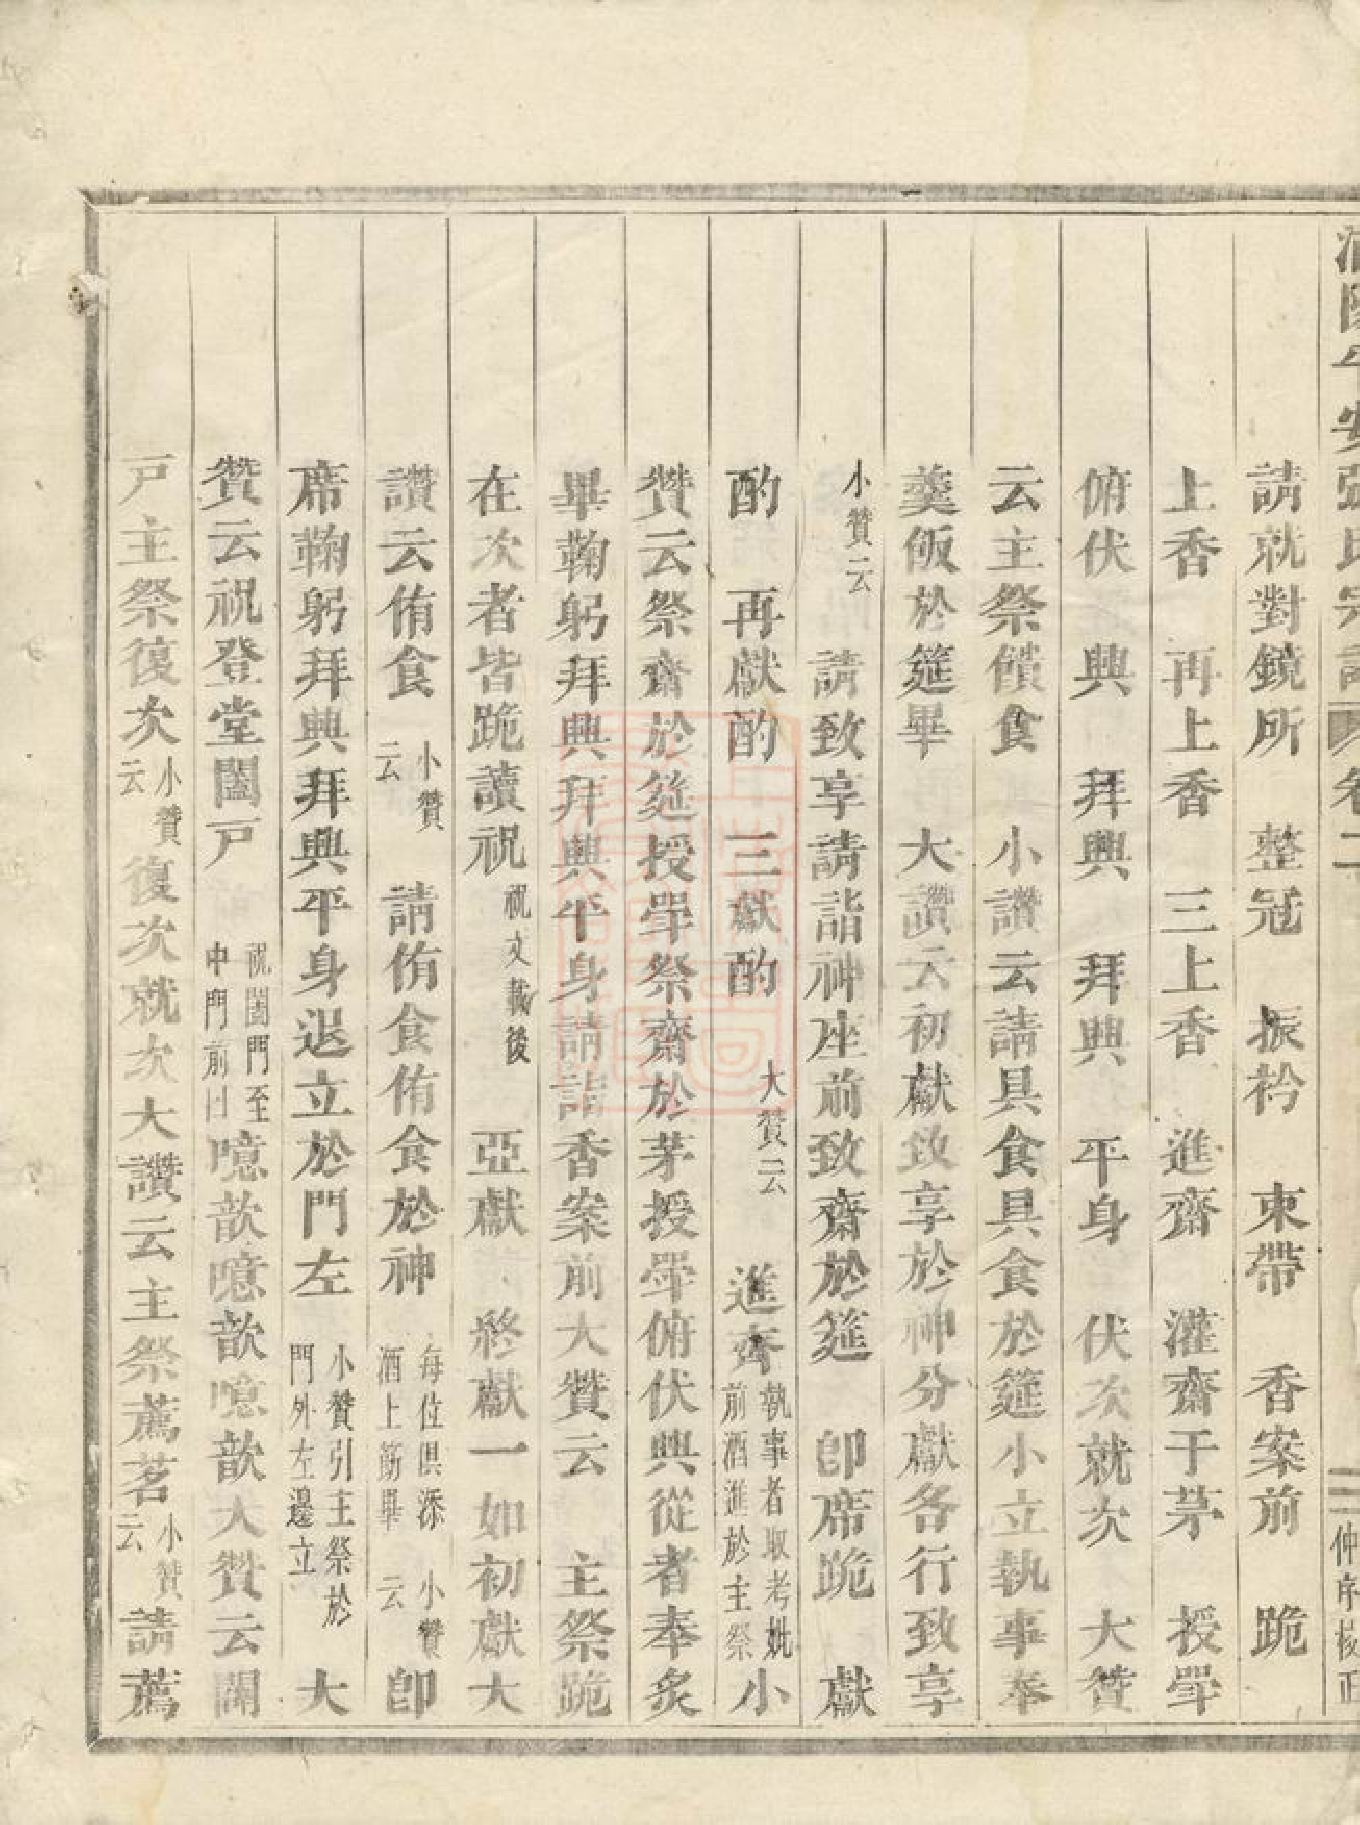 安張氏宗譜 卷二 仲序校正
請就對鏡所 整冠 振衿 束帶 香案前 跪
上香 再上香 三上香 進齋 灌齋于茅 授斝
俯伏 興 拜興 拜興 平身 伏次就次 大贊
云主祭饋食 小讚云請具食具食於筵小立執事奉
羹飯於筵畢 大讚云初獻致享於神分獻各行致享
小贊云 請致享請詣神座前致齋於筵 即席跪 獻
酌 再獻酌 三獻酌 大贊云 進齊執事者取考妣前酒進於主祭小
贊云祭齋於筵授斝祭齋於茅授斝俯伏興從者奉炙
畢鞠躬拜興拜興平身請詣香案前大贊云 主祭跪
在次者皆跪讀祝祝文載後 亞獻 終獻一如初獻大
讚云侑食 小贊云 請侑食侑食於神 每位俱添酒上筯畢 小贊云 即
席鞠躬拜興拜興平身退立於門左 小贊引主祭於門外左邊立 大
贊云祝登堂闔戸 祝闔門至中門前曰噫歆噫歆噫歆大贊云闔
戸主祭復次小贊云復次就次大讚云主祭薦茗小贊云請薦